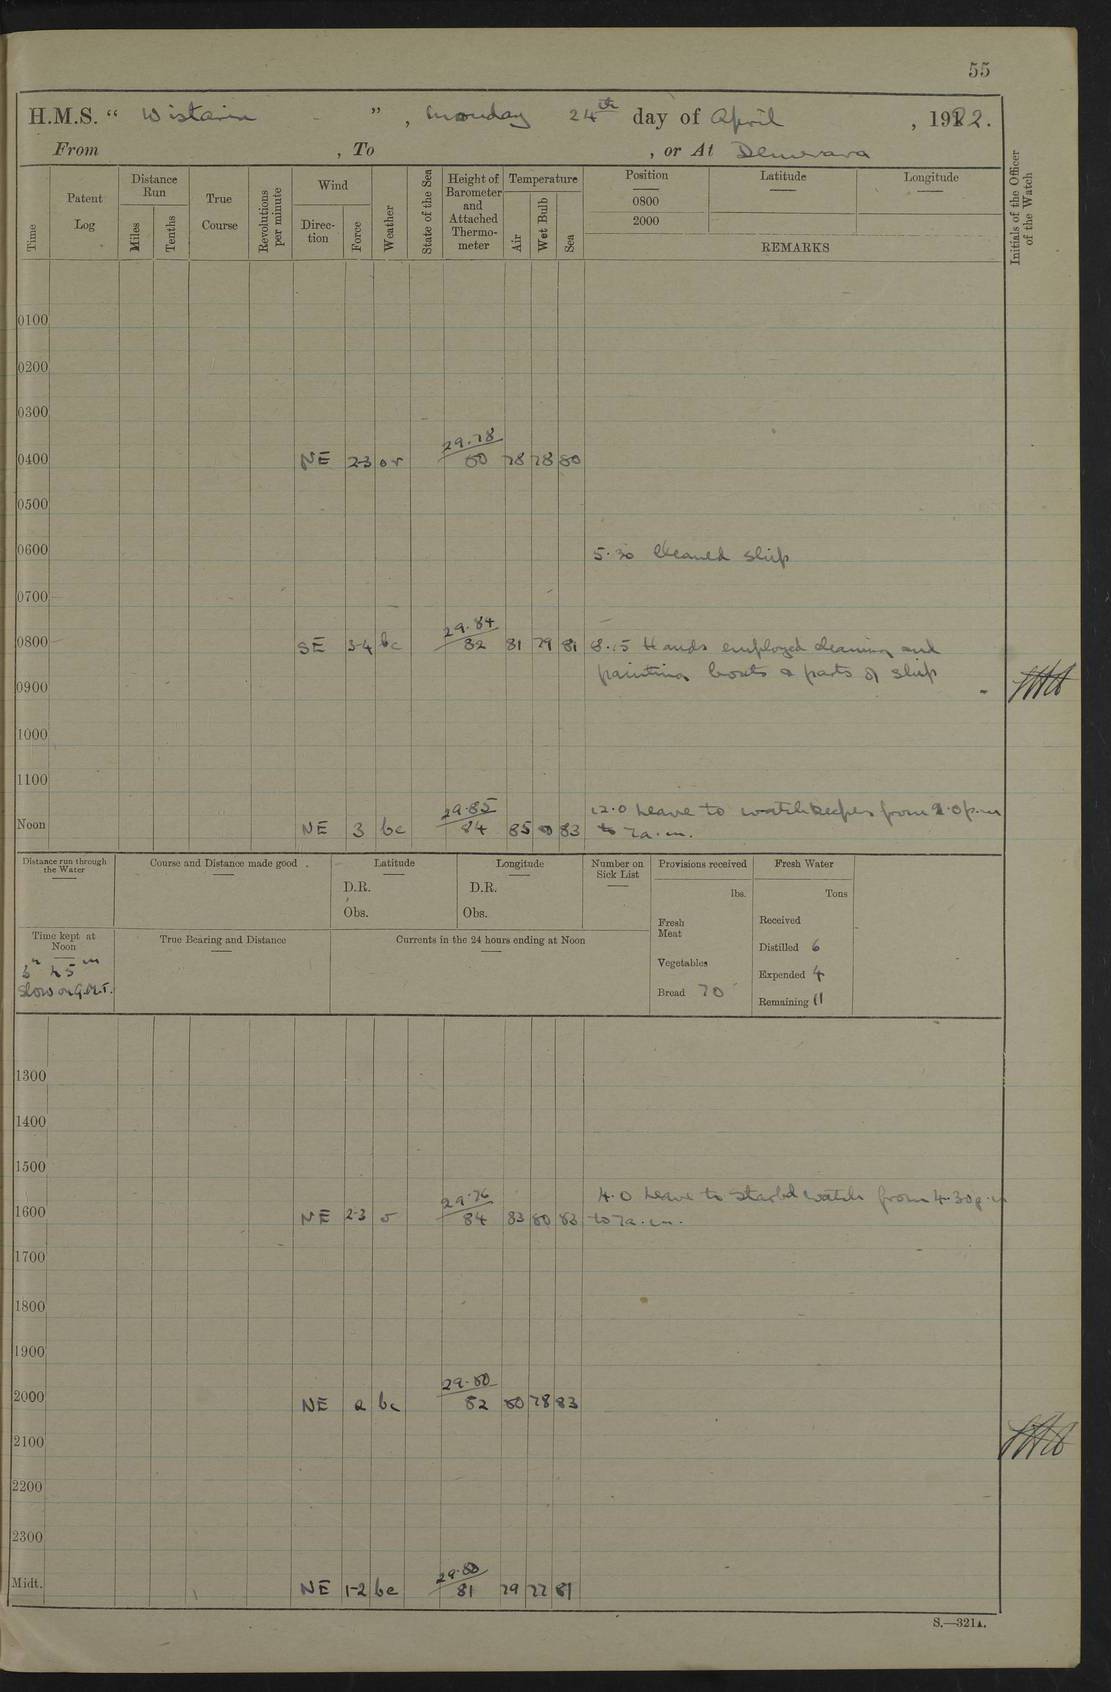 55
H.M.S. “ Wistaria ” , Monday 24th day of April , 1922.
From , To , or At Demerara
Time
Patent Log
Distance Run
Miles
Tenths
True Course
Revolutions per minute
Wind
Direction
Force
Weather
State of the Sea
Height of Barometer and Attached Thermometer
Temperature
Air
Wet Bulb
Sea
Position
0800
2000
Latitude
Longitude
REMARKS
Initials of the Officer of the Watch
0100
0200
0300
0400 NE 2-3 or 29.78 80 78 78 80
0500
0600 5.30 Cleaned ship
0700
0800 SE 3-4 bc 29.84 82 81 79 81 8.15 Hands employed cleaning and
painting boats & parts of ship
0900
1000
1100
12.0 Leave to watchkeepers from 1.0 p.m
Noon NE 3 bc 29.85 84 85 80 83 to 7a.m.
Distance run through the Water
Course and Distance made good .
Latitude
D.R.
Obs.
Longitude
D.R.
Obs.
Number on Sick List
Provisions received
lbs.
Fresh Meat
Vegetables
Bread 70
Fresh Water
Tons
Received
Distilled 6
Expended 4
Remaining 11
Time kept at Noon
slow on G.M.T.
True Bearing and Distance
Currents in the 24 hours ending at Noon
1300
1400
1500
4.0 Leave to starbd watch from 4.30p.m
1600 NE 2-3 o 29.76 84 83 80 83 to 7a.m.
1700
1800
1900
2000 NE 2 bc 29.80 82 80 78 83
2100
2200
2300
Midt. NE 1-2 bc 29.80 81 79 77 81
S.—321A.